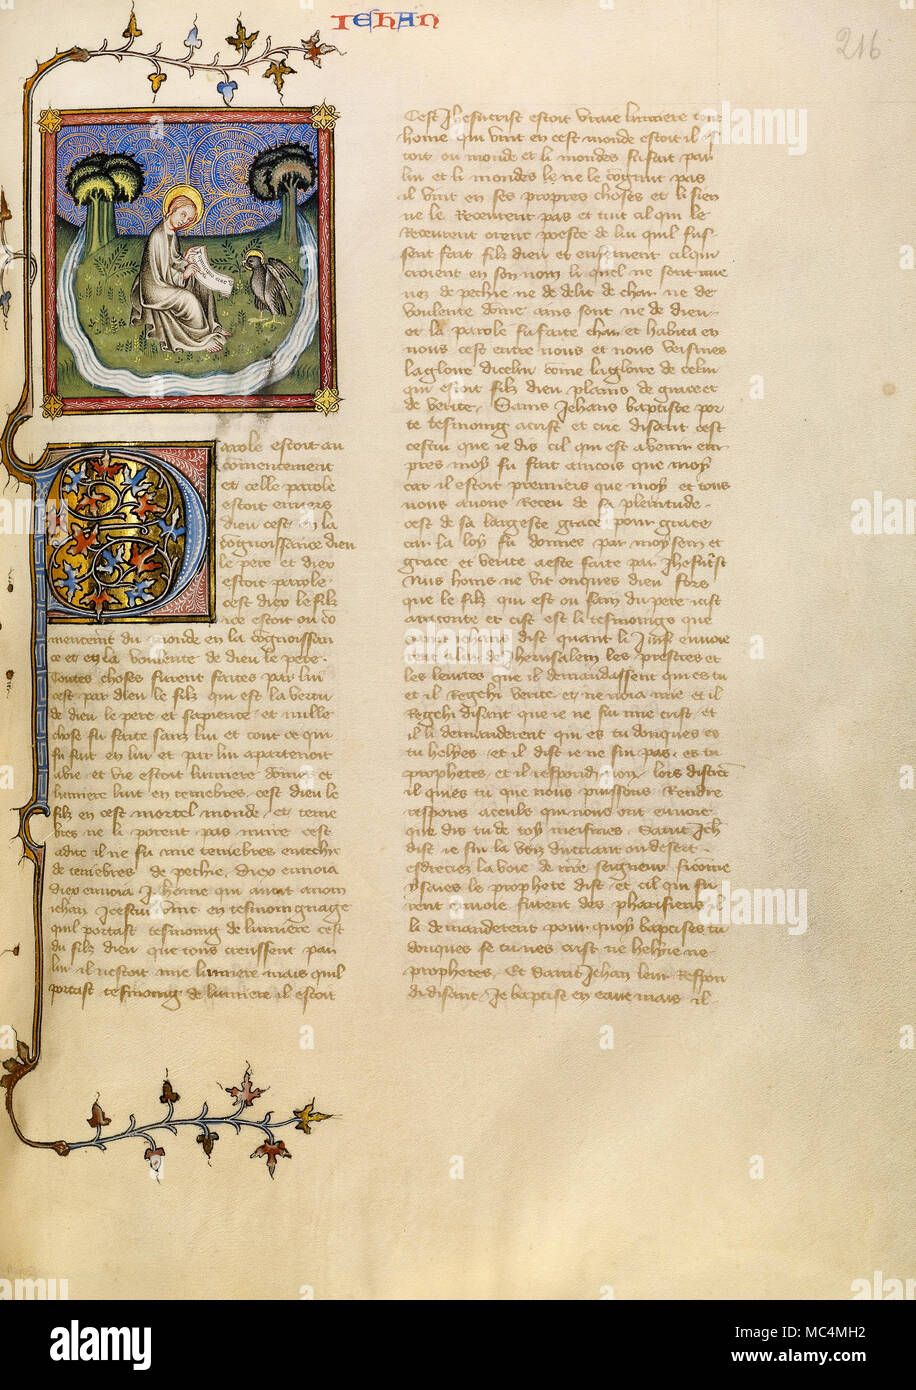 IEHAN
216
arole estoit au
comencement
et celle parole
estoit envers
dieu cest en la
cognoissance dieu
le pere et diex
estoit parole
cest diex le filz
ice estoit ou co
mencemt du monde en la cognoissan
ce et en la voulente de dieu le pere.
Toutes choses furent faites par lui
cest par dieu le filz qui est la vertu
de dieu le pere et sapience et nulle
chose fu faite sanz lui et tout ce qui
fu fait en lui et par lui apartenoit
a vie et vie estoit lumiere domes et
lumiere luit en tenebres. cest dieu le
filz en cest mortel monde. et tene
bres ne li porent pas nuire cest
adire il ne fu mie tenebres entechie
de tenebres de pechie. diex envoia
diex envoia J. home qui avoit a nom
iehan Icestui vint en tesmoingnage
quil portast tesmoing de lumiere cest
du filz dieu que tous creussent par
lui il nestoit mie lumiere mais quil
portast tesmoing de lumiere il estoit
Cest Jhesucrist estoit vraie lumiere tout
home qui vint en cest monde estoit il es
toit ou monde et li mondes fu fait par
lui et li mondes le ne le cognut pas
il vint en ses propres choses et li sien
ne le Receurent pas et tuit cil qui le
Receurent orent poeste de lui quil fus
sent fait filz dieu et ensement cil qui
croient en son nom li quel ne sont mie
nez de pechie ne de delit de char ne de
voulente dome ains sont ne de dieu
et la parole fu faite char et habita en
nous cest entre nous et nous veismes
la gloire dicelui come la gloire de celui
qui estoit filz dieu plains de grace et
de verite. Sains Jehans baptiste por
te tesmoing a crist et crie disant cest
cestui que ie dis cil qui est a venir em
pres moy fu fait aincois que moy
car il estoit premiers que moy et tous
nous avons Receu de sa plenitude
cest de sa largesce grace pour grace
car la loy fu donnee par moysem et
grace et verite a este faite par Jhesucrist
Nuls homs ne vit onques dieu fors
que le filz qui est ou sain du pere icist
a raconte et cist est li tesmoings que
saint iehans dist quant li Juif envoie
rent a lui de Jherusalem les prestres et
les levites que il demandassent qui es tu
et il Regehi verite et ne noia mie et il
Regehi disant que ie ne sui mie crist et
il li demanderent qui es tu donques es
tu helyes et il dist ie ne sui pas. es tu
prophetes. et il respondi non lors distrent
il qui es tu que nous puissons Rendre
respons a ceuls qui nous ont envoie
que dis tu de toy meismes. Saint Jeh
dist ie sui la voiz du criant ou desert.
esdreciez la voie de nre seigneur si come
ysaies le prophete dist et cil qui fu
rent envoie furent des pharisiens il
li demanderent pour quoy baptises tu
donques se tu nes crist ne helyie ne
prophetes. Et Saint Jehan leur Respon
di disant Je baptise en eaue mais il
alamy
Image ID: MC4MH2
www.alamy.com